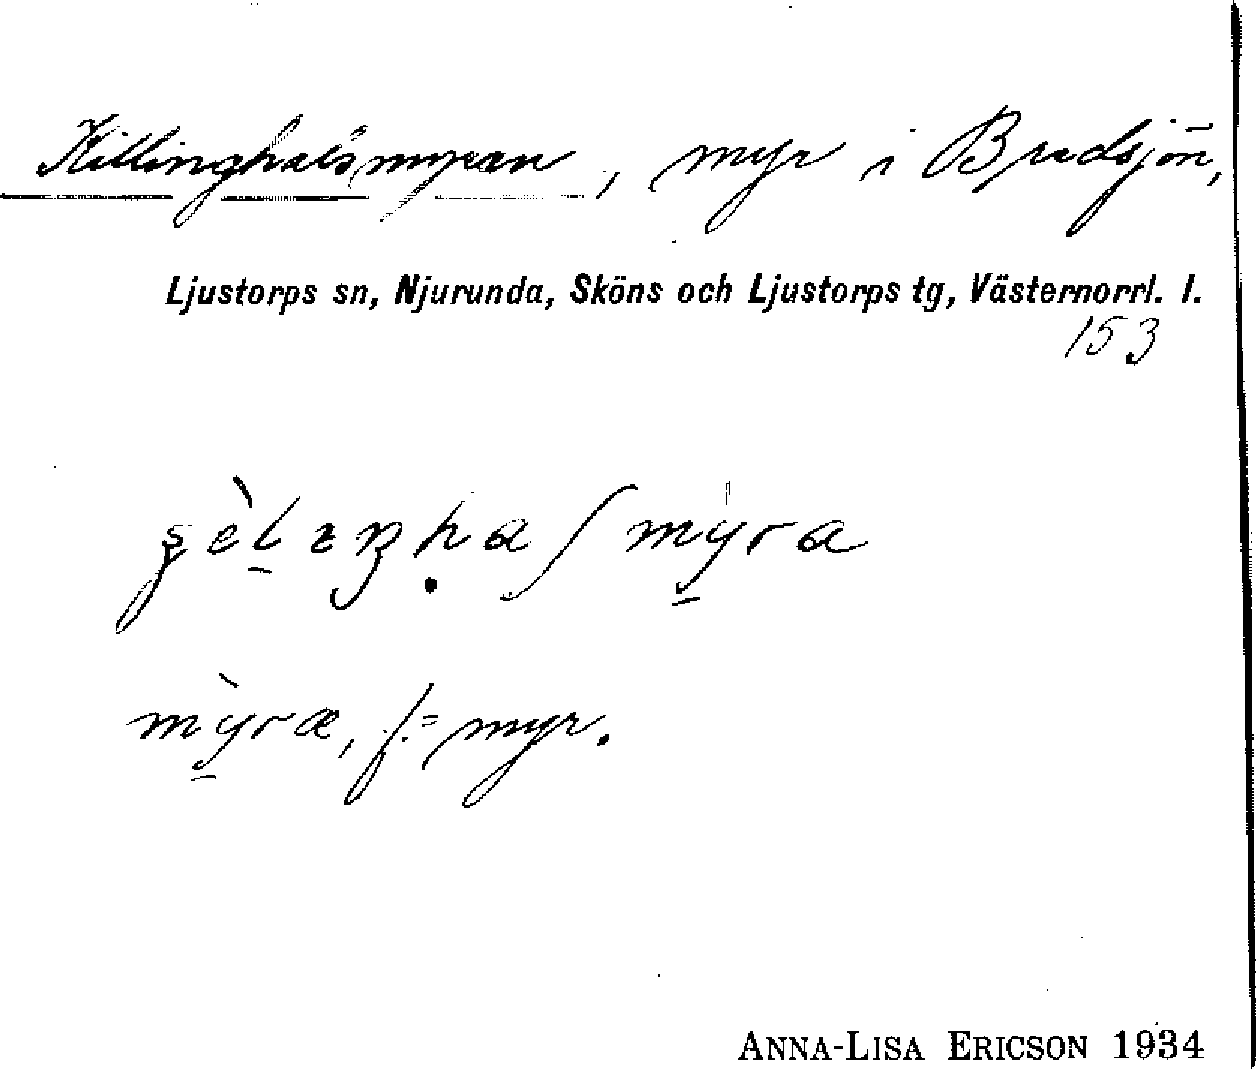 Killinghalsmyran, myr i Bredsjön,
Ljustorps sn, Njurunda, Sköns och Ljustorps tg, Västernorrl. l.
153
myræ, f. = myr.
ANNA-LISA ERICSON 1934